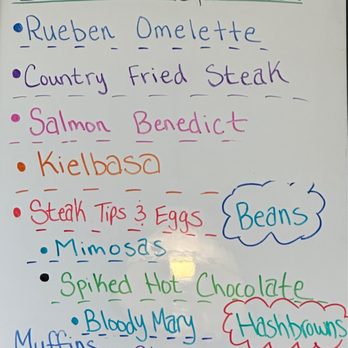 •Rueben Omelette
•Country Fried Steak
•Salmon Benedict
•Kielbasa
•Steak Tips & Eggs
Beans
•Mimosas
•Spiked Hot Chocolate
•Bloody Mary
Hashbrowns
Muffins